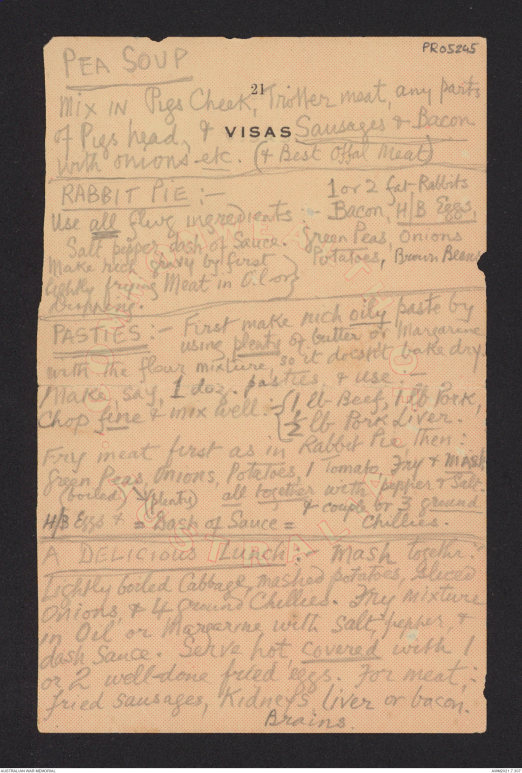 PR05245
PEA SOUP
21
Mix in Pigs Cheek, Trotter meat, any parts
of Pigs head, & Sausages & Bacon
VISAS
with onions etc. (& Best Offal Meat)
RABBIT PIE :— 1 or 2 fat Rabbits
Use all flwg ingredients : Bacon, H/B Eggs,
Salt pepper dash of Sauce. Green Peas, Onions
Make rich gravy by first Potatoes, Brown Beans
lightly frying Meat in Oil or
Dripping.
PASTIES :— First make rich oily paste by
using plenty of butter or Margarine
with the flour mixture, so it doesn't bake dry.
Make, say, 1 doz. pasties, & use :—
Chop fine & mix well :— 1 lb Beef, 1 lb Pork,
½ lb Pork Liver.
Fry meat first as in Rabbit Pie Then :
Green Peas, Onions, Potatoes, 1 Tomato, Fry & MASH
(boiled) (plenty) all together with pepper & Salt.
& couple or 3 ground
H/B Eggs & = Dash of Sauce = Chillies.
A DELICIOUS LUNCH :— Mash together :
Lightly boiled Cabbage, mashed potatoes, sliced
Onions, & 4 Ground Chillies. Fry mixture
in Oil, or Margarine with Salt, pepper, &
dash Sauce. Serve hot, covered with 1
or 2 well-done fried eggs. For meat :
fried sausages, Kidneys liver or bacon.
Brains.
AUSTRALIAN WAR MEMORIAL